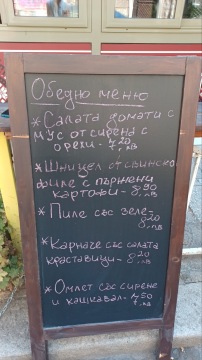 Обедно меню
*Салата домати с
мус от сирена с
орехи - 4.20 лв
*Шницел от свинско
филе с пържени
картофи - 8.90 лв
*Пиле със зеле -
8.20 лв
*Карначе със салата
краставици - 8.20 лв
*Омлет със сирене
и кашкавал - 7.50 лв